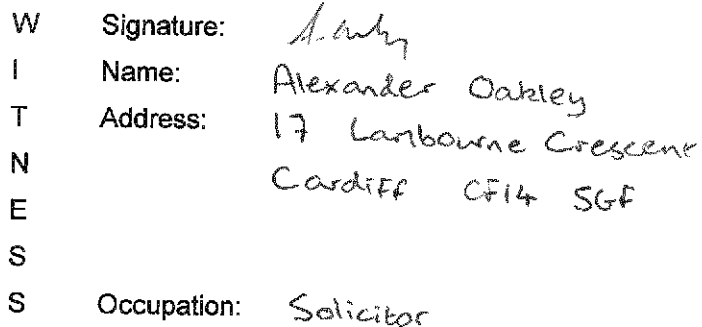 W Signature:
I Name: Alexander Oakley
T Address: 17 Lambourne Crescent
N Cardiff CF14 5GF
E
S
S Occupation: Solicitor